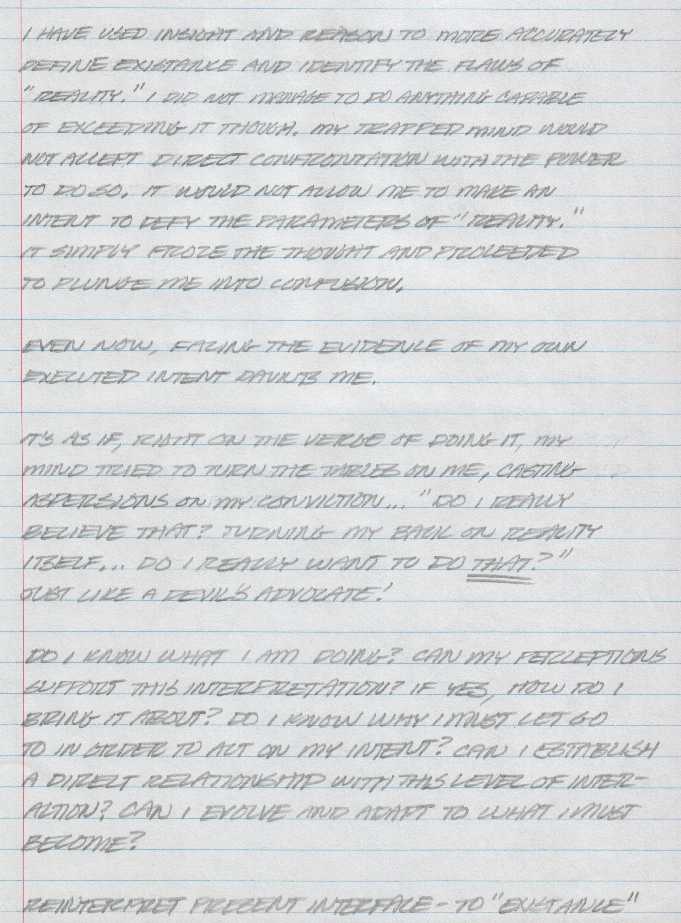 I HAVE USED INSIGHT AND REASON TO MORE ACCURATELY
DEFINE EXISTANCE AND IDENTIFY THE FLAWS OF
"REALITY." I DID NOT MANAGE TO DO ANYTHING CAPABLE
OF EXCEEDING IT THOUGH. MY TRAPPED MIND WOULD
NOT ACCEPT DIRECT CONFRONTATION WITH THE POWER
TO DO SO. IT WOULD NOT ALLOW ME TO MAKE AN
INTENT TO DEFY THE PARAMETERS OF "REALITY."
IT SIMPLY FROZE THE THOUGHT AND PROCEEDED
TO PLUNGE ME INTO CONFUSION.
EVEN NOW, FACING THE EVIDENCE OF MY OWN
EXECUTED INTENT DAUNTS ME.
IT'S AS IF, RIGHT ON THE VERGE OF DOING IT, MY
MIND TRIED TO TURN THE TABLES ON ME, CASTING
ASPERSIONS ON MY CONVICTION... "DO I REALLY
BELIEVE THAT? TURNING MY BACK ON REALITY
ITSELF... DO I REALLY WANT TO DO THAT?"
JUST LIKE A DEVIL'S ADVOCATE!
DO I KNOW WHAT I AM DOING? CAN MY PERCEPTIONS
SUPPORT THIS INTERPRETATION? IF YES, HOW DO I
BRING IT ABOUT? DO I KNOW WHY I MUST LET GO
TO IN ORDER TO ACT ON MY INTENT? CAN I ESTABLISH
A DIRECT RELATIONSHIP WITH THIS LEVEL OF INTER-
ACTION? CAN I EVOLVE AND ADAPT TO WHAT I MUST
BECOME?
REINTERPRET PRESENT INTERFACE - TO "EXISTANCE"